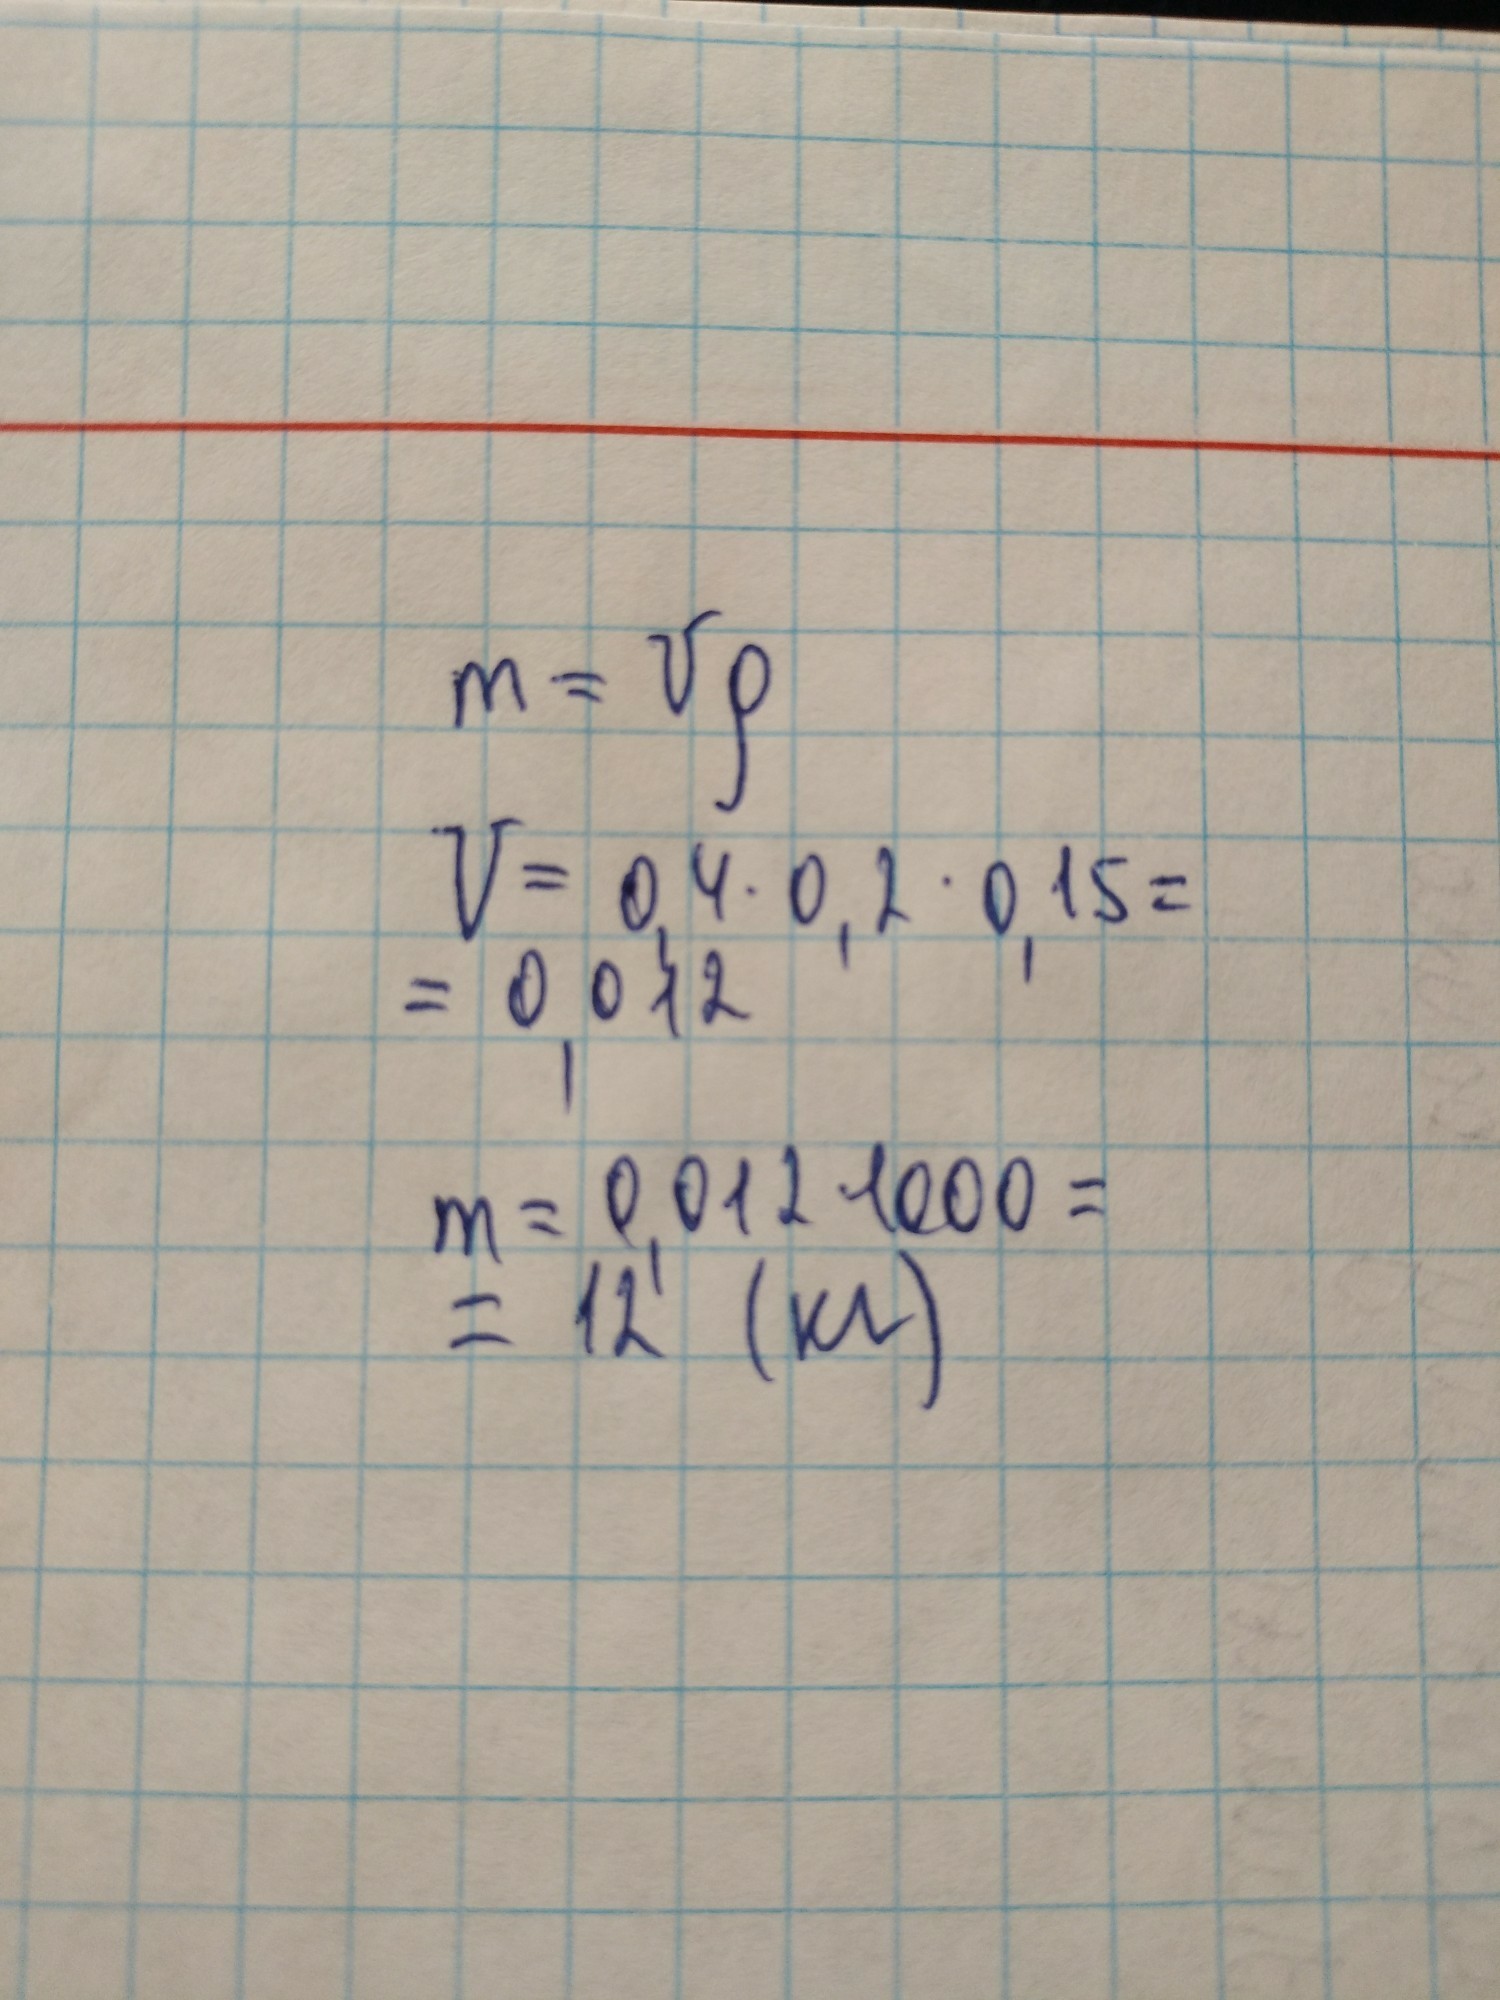 m = Vρ
V = 0,4 · 0,2 · 0,15 =
= 0,012
m = 0,012 · 1000 =
= 12 (кг)